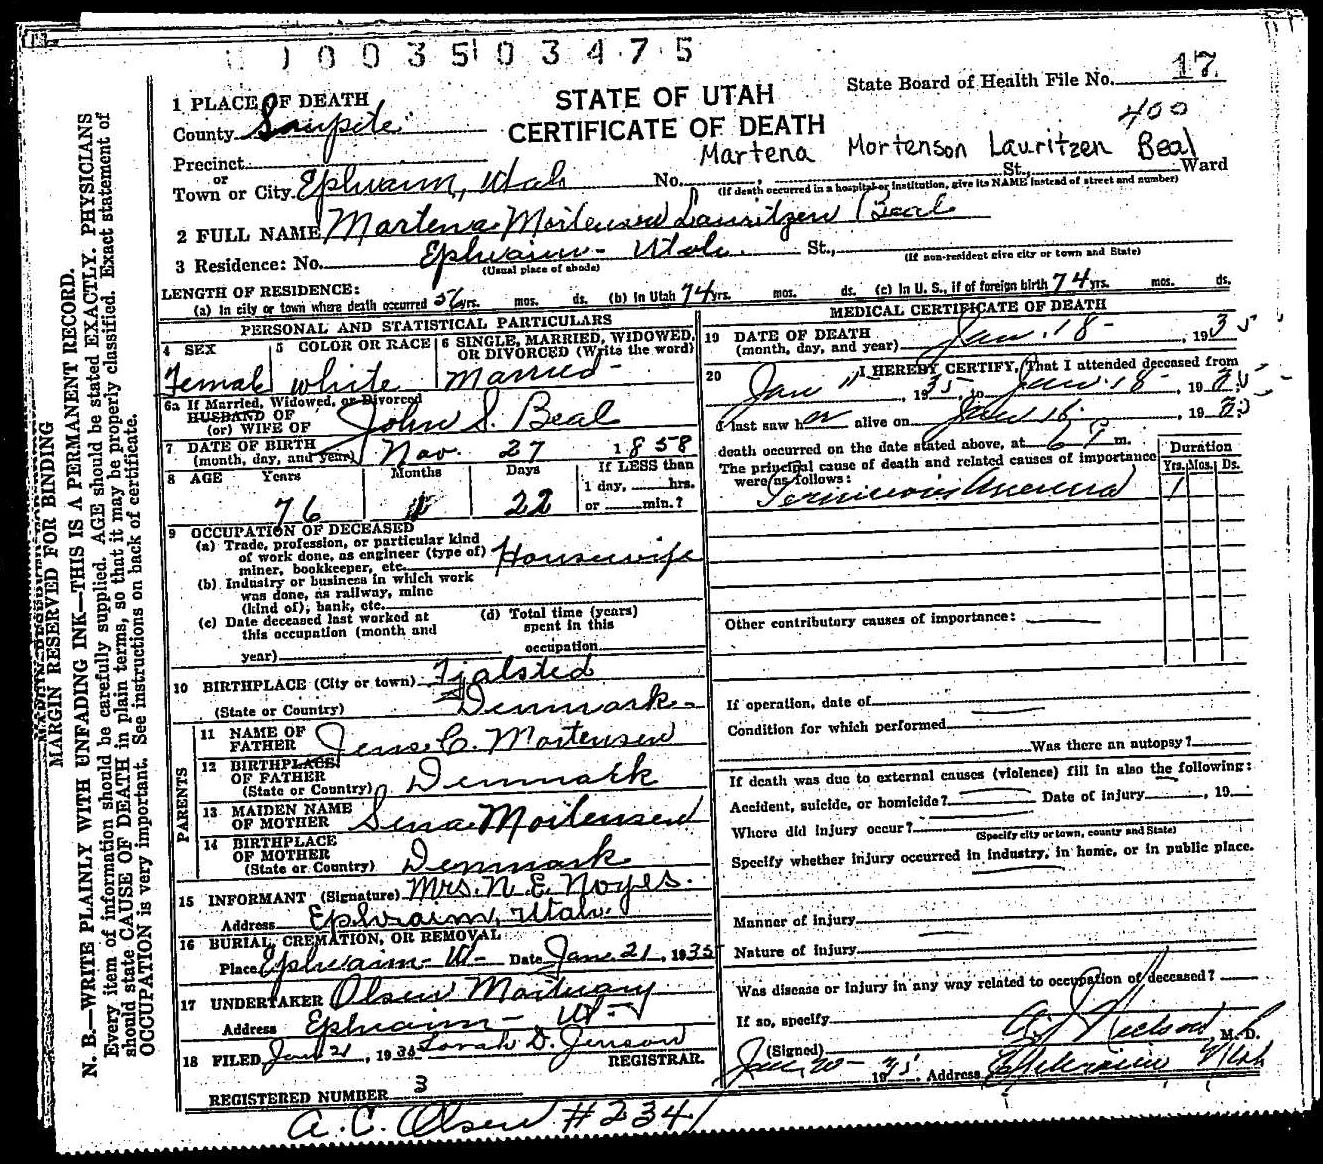 1003503475
State Board of Health File No. 17
400
STATE OF UTAH
CERTIFICATE OF DEATH
Martena Mortenson Lauritzen Beal
1 PLACE OF DEATH
County Sanpete
Precinct
or
Town or City Ephraim, Utah No. , St., Ward
(If death occurred in a hospital or institution, give its NAME instead of street and number)
2 FULL NAME Martena Mortensen Lauritzen Beal
3 Residence: No. Ephraim - Utah St.,
(Usual place of abode) (If non-resident give city or town and State)
LENGTH OF RESIDENCE:
(a) In city or town where death occurred 56 yrs. mos. ds. (b) In Utah 74 yrs. mos. ds. (c) In U. S., if of foreign birth 74 yrs. mos. ds.
PERSONAL AND STATISTICAL PARTICULARS
4 SEX Female
5 COLOR OR RACE white
6 SINGLE, MARRIED, WIDOWED,
OR DIVORCED (Write the word)
Married -
6a If Married, Widowed, or Divorced
HUSBAND OF
(or) WIFE OF John S. Beal
7 DATE OF BIRTH
(month, day, and year) Nov. 27 1858
8 AGE Years Months Days If LESS than
1 day, hrs.
or min.?
76 1 22
9 OCCUPATION OF DECEASED
(a) Trade, profession, or particular kind
of work done, as engineer (type of)
miner, bookkeeper, etc. Housewife
(b) Industry or business in which work
was done, as railway, mine
(kind of), bank, etc.
(c) Date deceased last worked at
this occupation (month and
year)
(d) Total time (years)
spent in this
occupation
10 BIRTHPLACE (City or town) Fjalsted
(State or Country) Denmark -
PARENTS
11 NAME OF
FATHER Jens C. Mortensen
12 BIRTHPLACE
OF FATHER
(State or Country) Denmark
13 MAIDEN NAME
OF MOTHER Sena Mortensen
14 BIRTHPLACE
OF MOTHER
(State or Country) Denmark
15 INFORMANT (Signature) Mrs. N. E. Noyes.
Address Ephraim, Utah.
16 BURIAL, CREMATION, OR REMOVAL
Place Ephraim - Ut - Date Jan. 21, 1935
17 UNDERTAKER Olsen Mortuary
Address Ephraim - Ut -
18 FILED Jan 21, 1935 Sarah D. Jenson
REGISTRAR.
REGISTERED NUMBER 3
A. C. Olsen #2341
MEDICAL CERTIFICATE OF DEATH
19 DATE OF DEATH
(month, day, and year) Jan. 18 - , 1935
20 I HEREBY CERTIFY, That I attended deceased from
Jan 11 - , 1935, to Jan. 18 - , 1935
I last saw her alive on Jan 18. , 1935
death occurred on the date stated above, at 6 P m.
The principal cause of death and related causes of importance
were as follows:
Pernicious Anemia
Duration
Yrs. Mos. Ds.
1
Other contributory causes of importance:
If operation, date of
Condition for which performed
Was there an autopsy?
If death was due to external causes (violence) fill in also the following:
Accident, suicide, or homicide? Date of injury , 19
Where did injury occur?
(Specify city or town, county and State)
Specify whether injury occurred in industry, in home, or in public place.
Manner of injury
Nature of injury
Was disease or injury in any way related to occupation of deceased?
If so, specify
(Signed) Nielson M. D.
Jan. 20 - 1935. Address Ephraim Utah
MARGIN RESERVED FOR BINDING
N. B.—WRITE PLAINLY WITH UNFADING INK—THIS IS A PERMANENT RECORD.
Every item of information should be carefully supplied. AGE should be stated EXACTLY. PHYSICIANS
should state CAUSE OF DEATH in plain terms, so that it may be properly classified. Exact statement of
OCCUPATION is very important. See instructions on back of certificate.